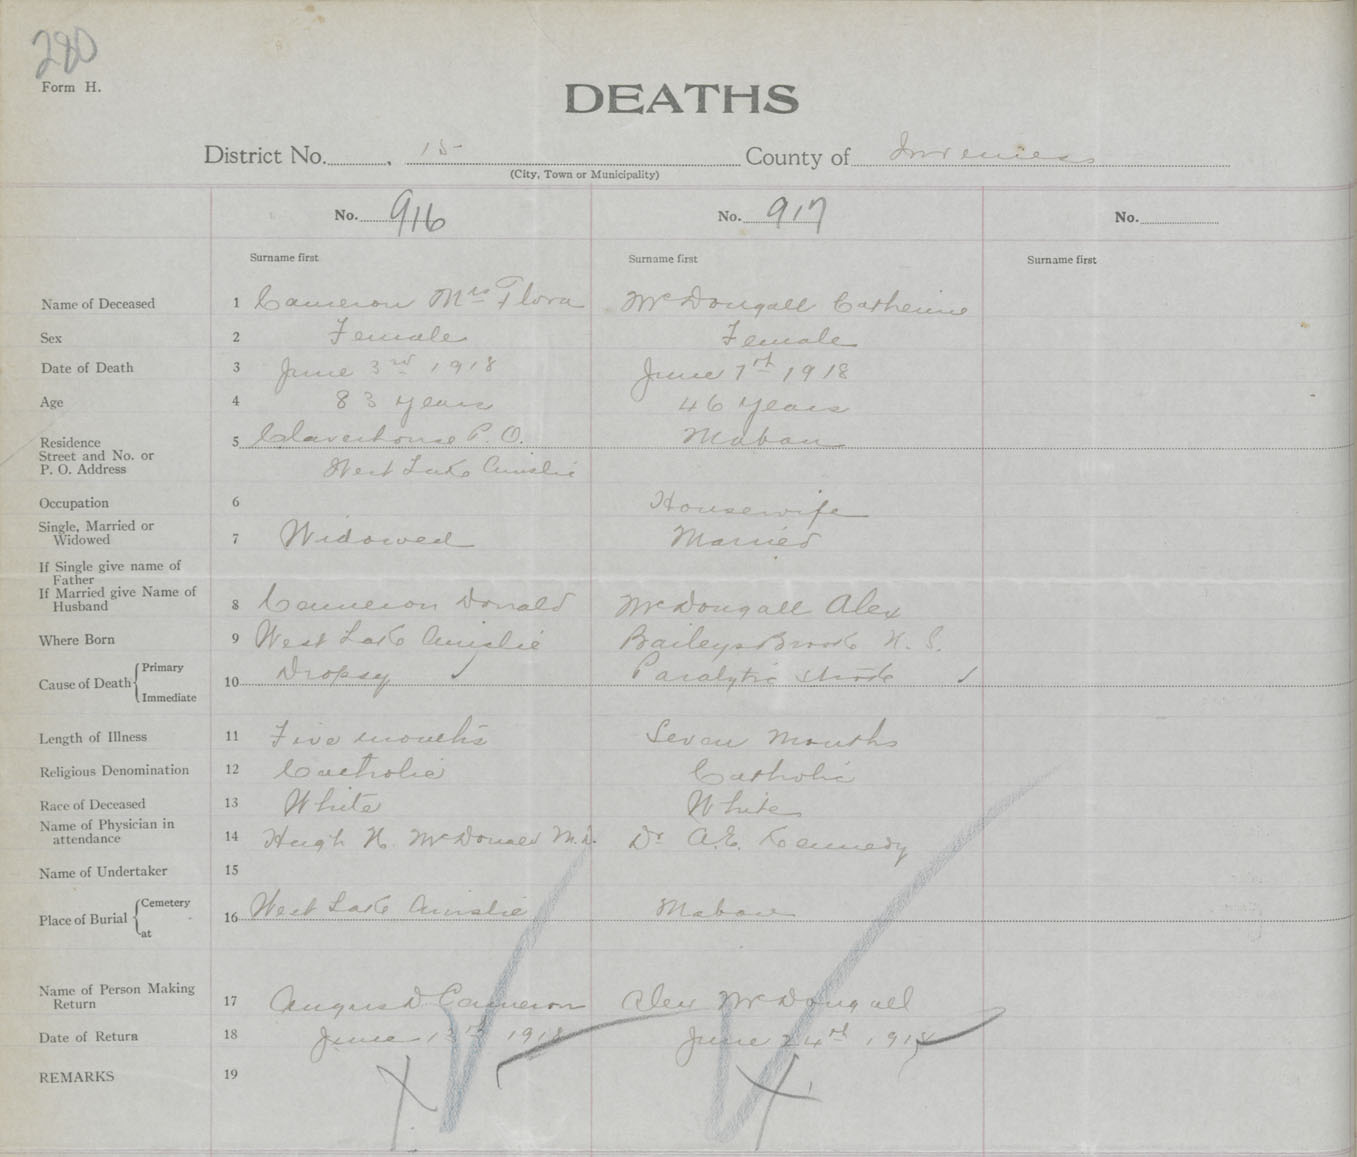 280
Form H.
DEATHS
District No. 15 County of Inverness
(City, Town or Municipality)
No. 916 No. 917 No.
Surname first Surname first Surname first
Name of Deceased 1 Cameron Mrs Flora McDougall Catherine
Sex 2 Female Female
Date of Death 3 June 3rd 1918 June 7th 1918
Age 4 83 years 46 years
Residence 5 Claverhouse P.O. Mabou
Street and No. or
P. O. Address West Lake Ainslie
Occupation 6 Housewife
Single, Married or
Widowed 7 Widowed Married
If Single give name of
Father
If Married give Name of
Husband 8 Cameron Donald McDougall Alex
Where Born 9 West Lake Ainslie Baileys Brook N. S.
Cause of Death Primary 10 Dropsy Paralytic stroke
Immediate
Length of Illness 11 Five months Seven Months
Religious Denomination 12 Catholic Catholic
Race of Deceased 13 White White
Name of Physician in
attendance 14 Hugh N. McDonald M.D. Dr A.E. Kennedy
Name of Undertaker 15
Place of Burial Cemetery 16 West Lake Ainslie Mabou
at
Name of Person Making
Return 17 Angus D Cameron Alex McDougall
Date of Return 18 June 1918 June 24th 1918
REMARKS 19